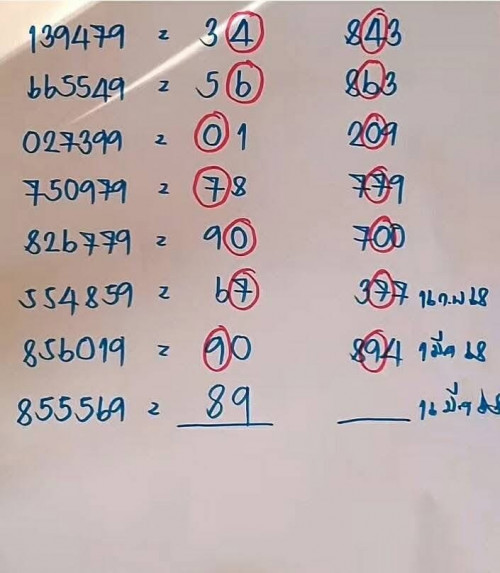 139479 = 34 843
665549 = 56 863
027399 = 01 209
750979 = 78 779
826779 = 90 700
554859 = 67 377 16 ก.พ 68
856019 = 90 894 1 มีค 68
855569 = 89 ____ 16 มี.ค 68